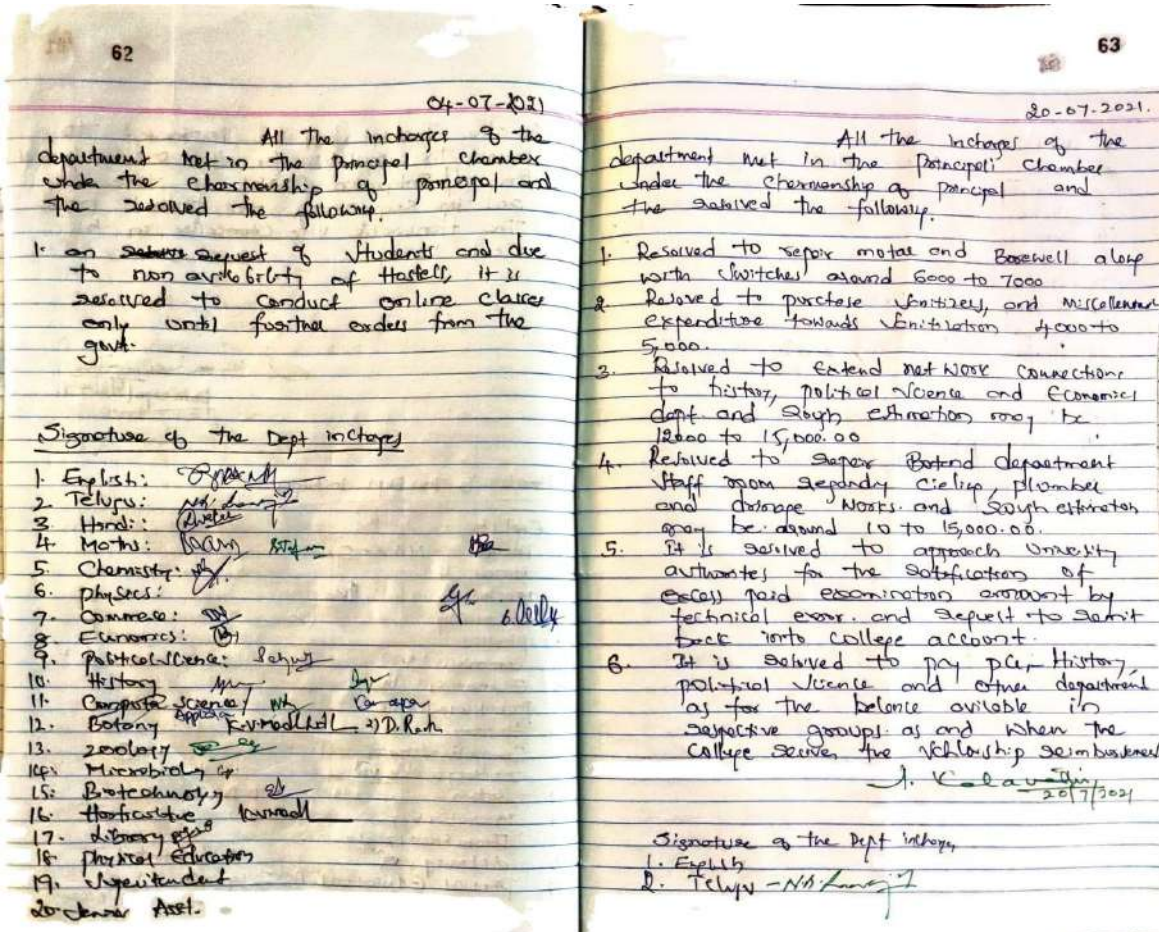 62
04-07-2021
All the incharges of the
department met in the principal chamber
under the chairmanship of principal and
the resolved the following.
1. on request of students and due
to non avilability of Hostells, it is
resolved to conduct online classes
only until further orders from the
govt.
Signature of the Dept incharges
1. English:
2 Telugu:
3 Hindi:
4. Maths:
5. Chemistry:
6. physics:
7. Commerce:
8. Economics:
9. political science:
10. History
11. Computer science/ Application
12. Botany K.V.Madl 2) D.R
13. zoology
14. Microbiology
15. Biotechnology
16. Horticulture
17. Library
18. physical Education
19. Superitendent
20. Junior Asst.
63
20-07-2021.
All the incharges of the
department met in the Principal Chamber
under the chermanship of principal and
the resolved the following.
1. Resolved to repair motar and Borewell along
with switches around 6000 to 7000
2. Resolved to purchase senitizers, and miscellenous
expenditure towards senitization 4000 to
5,000.
3. Resolved to extend net work connections
to history, political science and Economics
dept. and rough estimation may be
12000 to 15,000.00
4. Resolved to repair department
staff room cieling, plumber
and drinage works. and rough estimation
may be. around 10 to 15,000.00.
5. It is resolved to approach University
authorites for the of
excess paid examination amount by
technical error. and request to remit
back into college account.
6. It is resolved to pay History,
political science and other department
as for the belence avilable in
respective groups. as and when the
college the reimbursement
20/7/2021
Signature of the Dept incharges
1. English
2. Telugu -